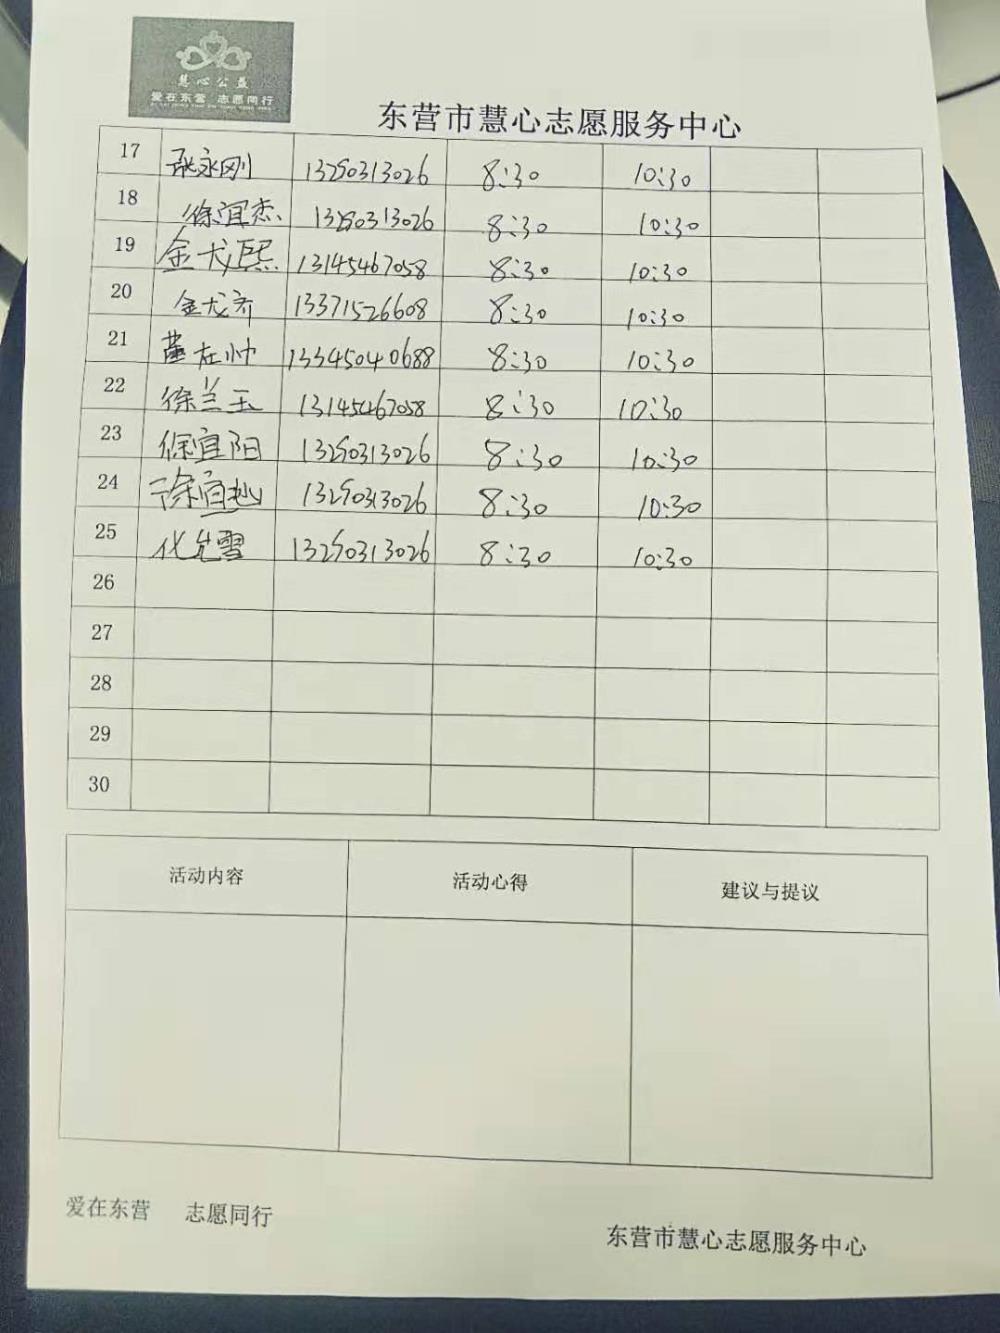 慧心公益
爱在东营 志愿同行
东营市慧心志愿服务中心
17 张永刚 13290313026 8:30 10:30
18 徐宜杰 13290313026 8:30 10:30
19 金戈熙 13145467058 8:30 10:30
20 金戈齐 13371526608 8:30 10:30
21 董在帅 13345040688 8:30 10:30
22 徐兰玉 13145467058 8:30 10:30
23 徐宜阳 13290313026 8:30 10:30
24 徐宜 13290313026 8:30 10:30
25 化先雪 13290313026 8:30 10:30
26
27
28
29
30
活动内容 活动心得 建议与提议
爱在东营 志愿同行
东营市慧心志愿服务中心